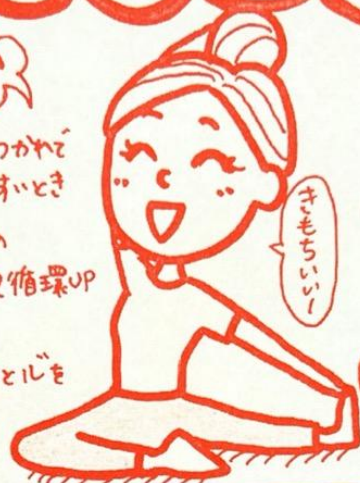 つかれて
すいとき
循環UP
と心を
きもちいい！